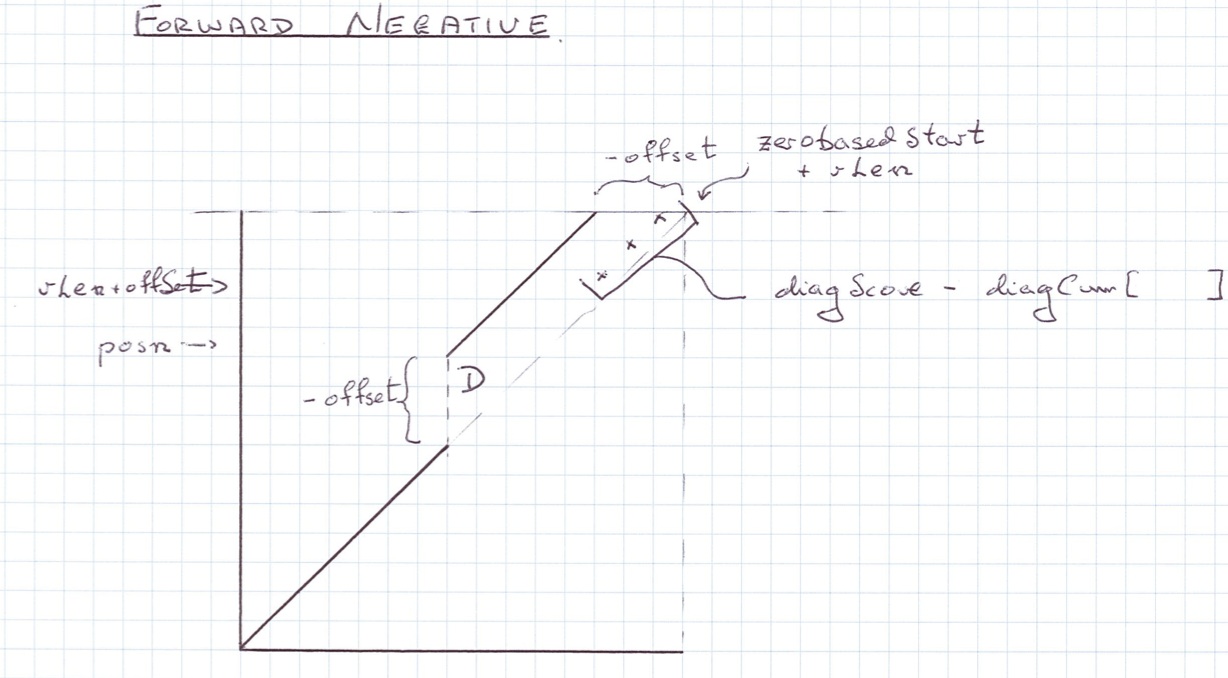 FORWARD NEGATIVE.
-offset
zerobased Start
+ rLen
rLen+offSet->
diagScore - diagCum[ ]
posn ->
-offset
D